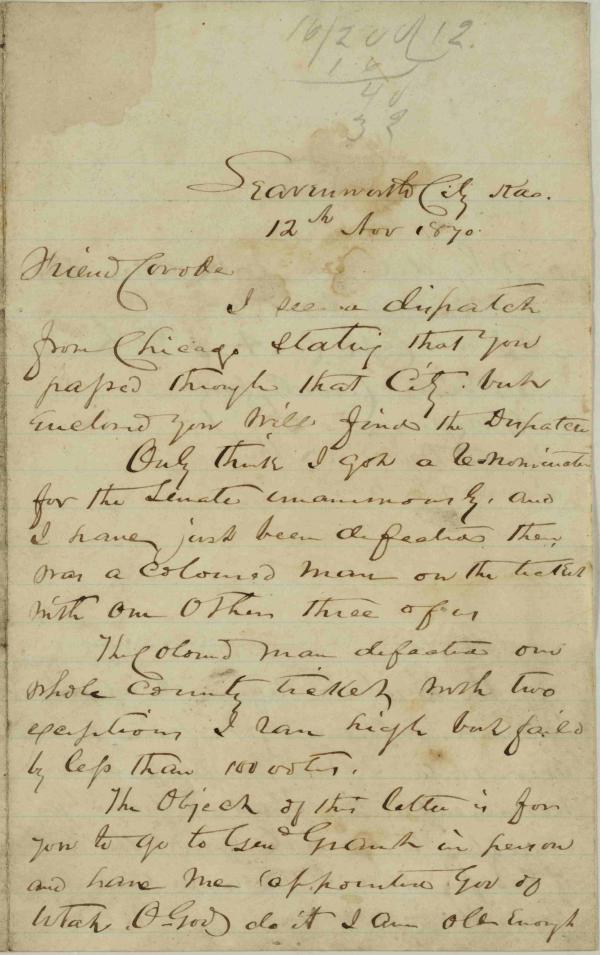 16/200/12
16
40
32
Leavenworth City Kas.
12th Nov 1870.
Friend Covode
I see a dispatch
from Chicago stating that you
passed through that City. but
enclosed you will find the Dispatch
Only think I got a Renomination
for the Senate unanimously. and
I have just been defeated there
was a coloured man on the ticket
with one other three of us
The colored man defeated our
whole County ticket with two
exceptions I ran high but failed
by less than 100 votes.
The Object of this letter is for
you to go to Genl Grant in person
and have me appointed Gov of
Utah. O God do it I am old enough